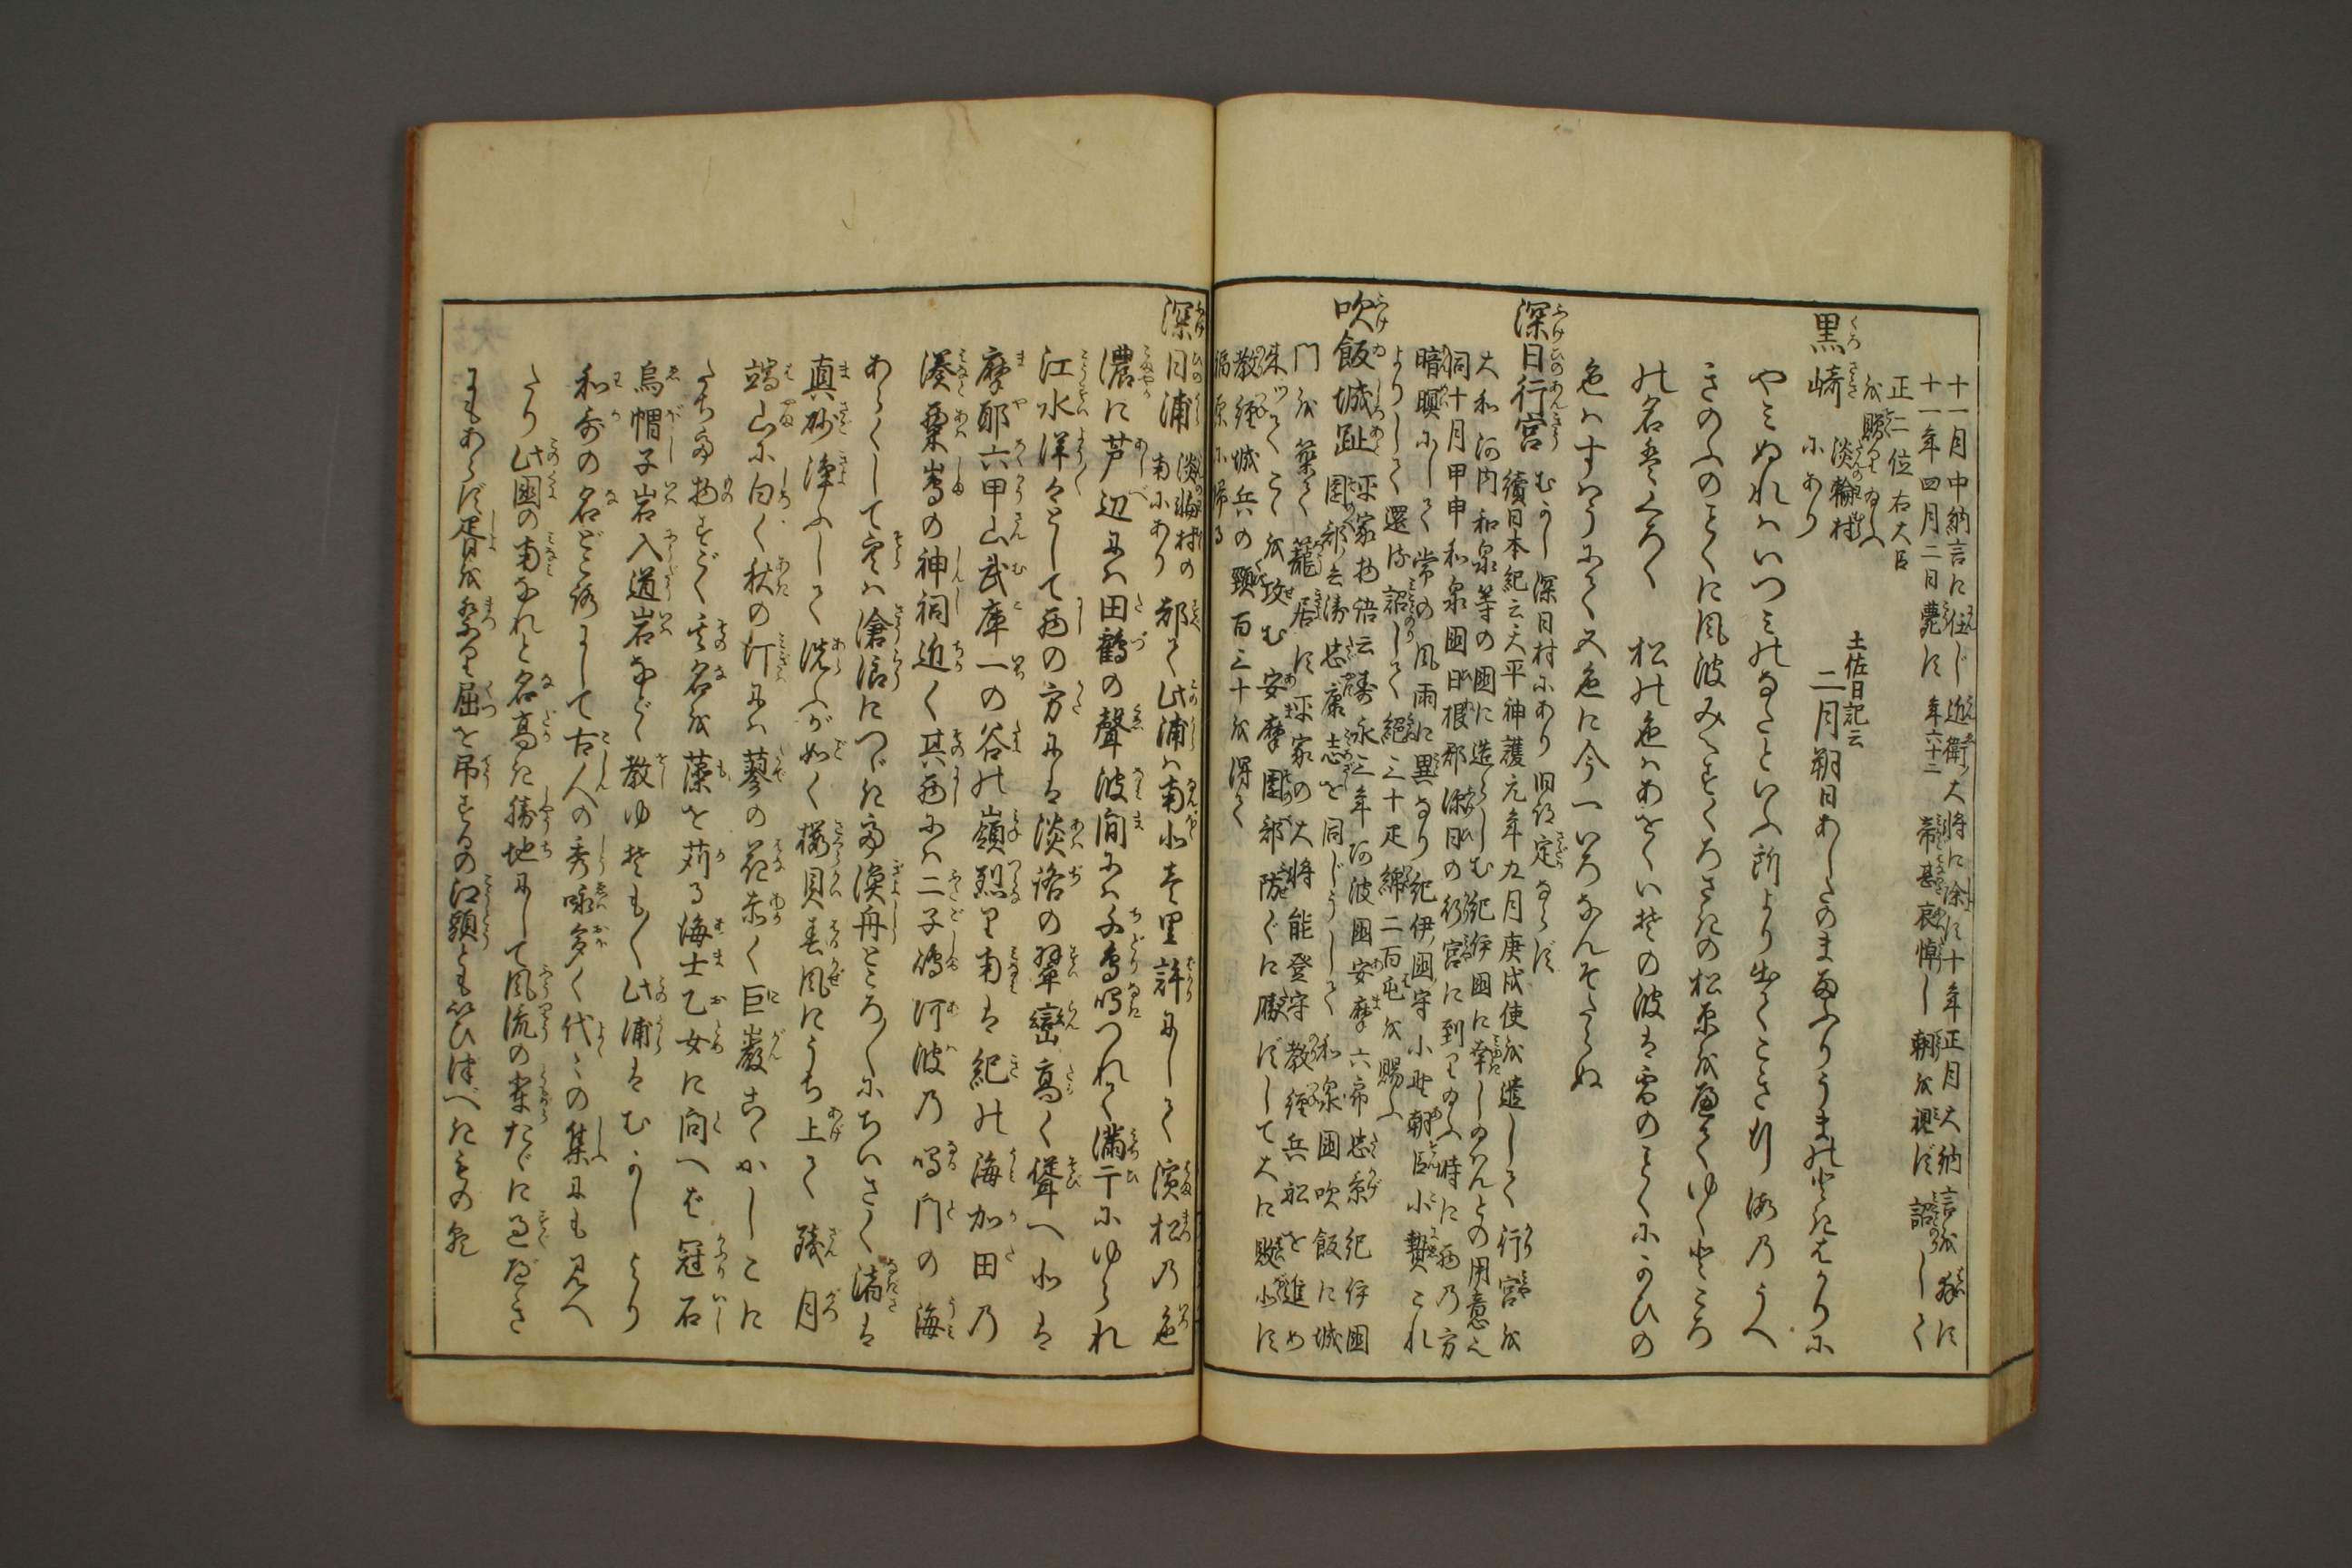 十一月中納言に任じ近衛ノ大将に除す十年正月大納言を拜す
十一年四月二日薨す年六十二帝甚哀悼し朝を視ず詔して
正二位右大臣
を贈り給ふ
黒崎
淡輪村
にあり
土佐日記云
二月朔日あしたのま雨ふりうまの時ばかりに
やみぬれはいつみのなたといふ所より出てこき行海のうへ
きのふのことくに風波みえすくろさきの松原をへてゆくところ
の名はくろく松の色はあをくいその波は雪のことくにかひの
色はすはうにて五色に今一いろなんそたらぬ
深日行宮
むかし深日村にあり旧跡定ならず
續日本紀云天平神護元年九月庚戌使を遣して行宮を
大和河内和泉等の国に造らしむ紀伊国に幸し給はんとの用意也
同十月甲申和泉国日根郡深日の行宮に到り給ふ時に西乃方
暗瞑にして常の風雨に異なり紀伊国守小野朝臣小贄これ
よりして還る詔して絁三十疋綿二百屯を賜ふ
吹飯城趾
平家物語云壽永三年阿波国安摩六郎忠景紀伊国
園部兵衛忠康志を同じうして和泉国吹飯に城
門を築て籠居す平家の大将能登守教経兵船を進め
来ッてこゝを攻む安摩園部防ぐに勝ずして大に敗北す
教経城兵の頸百三十を得て
福原に帰る
深日浦
淡輪村の
南にあり
都て此浦は南北壱里許にして濱松乃色
濃に芦辺には田鶴の聲波間には千鳥鳴つれて満干にゆられ
江水洋々として西の方には淡路の翠巒高く聳へ北は
摩耶六甲山武庫一の谷の嶺烈り南は紀の海加田乃
湊粟嶌の神祠近く其西には二子嶋阿波乃鳴門の海
あらくして空は滄浪につゞき漁舟ところ〴〵にちいさく渚は
真砂浄ふして洗ふが如く櫻貝春風にうち上て残月
端山に白く秋の汀には蓼の花赤く巨巌こゝかしこに
たち物すごく其名を藻を苅る海士乙女に向へば冠石
烏帽子岩入道岩など教ゆそも〳〵此浦はむかしより
和歌の名どころにして古人の秀咏多く代々の集にも見へ
たり此國の南なれと名高き勝地にして風流の輩たゞに過べき
にもあらず胥を祭り屈を吊するの江頭とも以ひ津べきもの歟